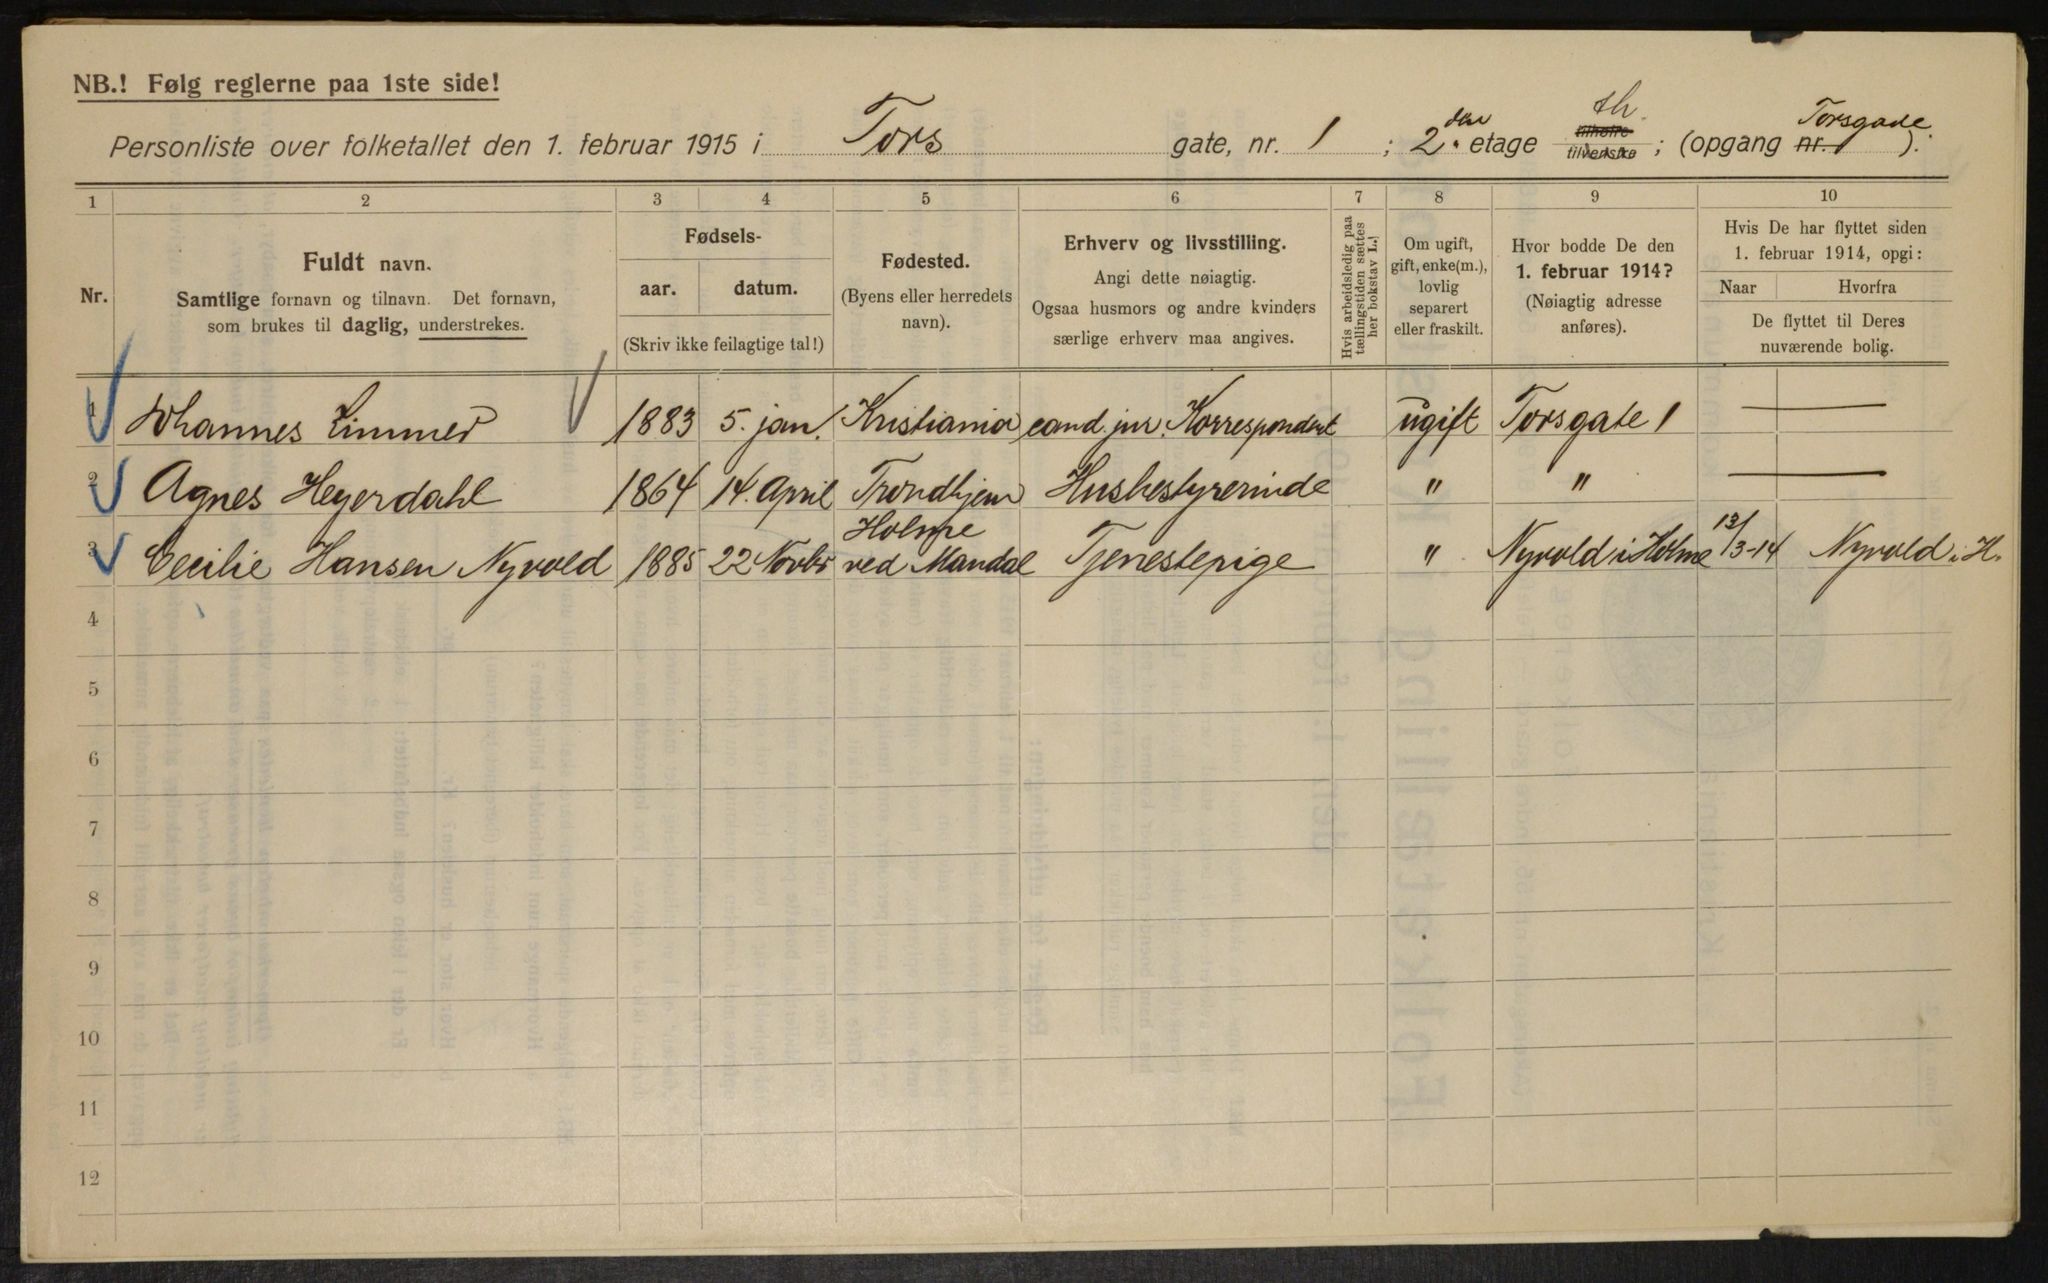 NB.! Følg reglerne paa 1ste side!
Personliste over folketallet den 1. februar 1915 i Tors gate, nr. 1 ; 2den etage th. tilhøire tilvenstre ; (opgang nr. Torsgade 1 ).
1 2 3 4 5 6 7 8 9 10
Nr.
Fuldt navn.
Samtlige fornavn og tilnavn. Det fornavn,
som brukes til daglig, understrekes.
Fødsels-
aar. datum.
(Skriv ikke feilagtige tal!)
Fødested.
(Byens eller herredets
navn).
Erhverv og livsstilling.
Angi dette nøiagtig.
Ogsaa husmors og andre kvinders
særlige erhverv maa angives.
Hvis arbeidsledig paa
tællingstiden sættes
her bokstav L.!
Om ugift,
gift, enke(m.),
lovlig
separert
eller fraskilt.
Hvor bodde De den
1. februar 1914?
(Nøiagtig adresse
anføres).
Hvis De har flyttet siden
1. februar 1914, opgi:
Naar Hvorfra
De flyttet til Deres
nuværende bolig.
1 Johannes Zimmer 1883 5. jan. Kristiania cand. jur. Korrespondent ugift Torsgate 1 —
2 Agnes Heyerdahl 1864 14. April Trondhjem Husbestyrerinde " " —
3 Cecilie Hansen Nyvold 1885 22 Novbr Holme ved Mandal Tjenestepige " Nyvold i Holme 13/3-14 Nyvold i H.
4
5
6
7
8
9
10
11
12